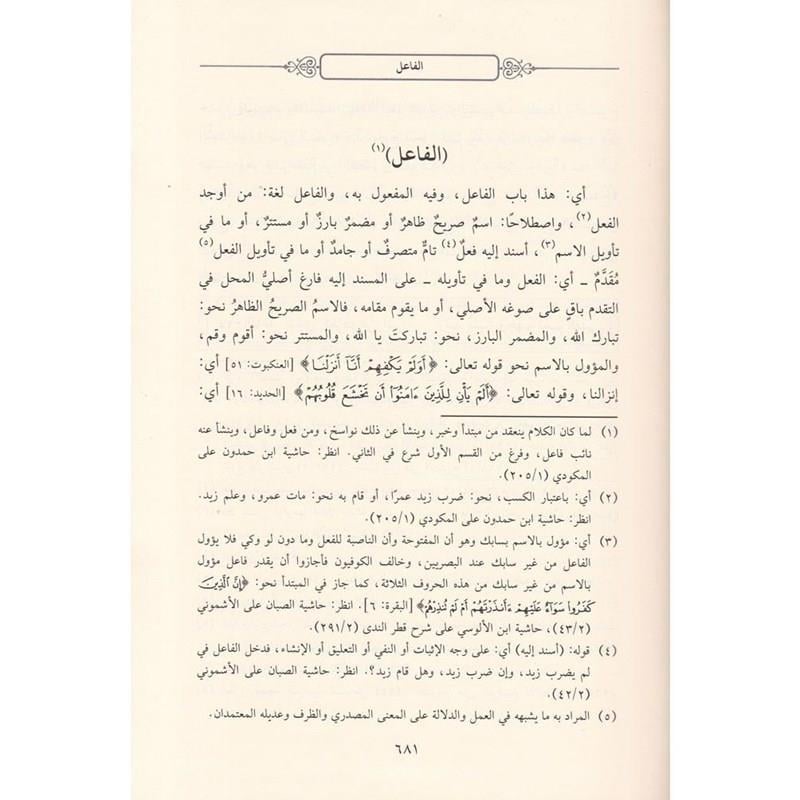 الفاعل
(الفاعل)(١)
أي: هذا باب الفاعل، وفيه المفعول به، والفاعل لغة: من أوجد
الفعل(٢)، واصطلاحًا: اسمٌ صريحٌ ظاهرٌ أو مضمرٌ بارزٌ أو مستترٌ، أو ما في
تأويل الاسم(٣)، أسند إليه فعلٌ(٤) تامٌّ متصرفٌ أو جامدٌ أو ما في تأويل الفعل(٥)
مُقَدَّمٌ ــ أي: الفعل وما في تأويله ــ على المسند إليه فارغ أصليُّ المحل في
التقدم باقٍ على صوغه الأصلي، أو ما يقوم مقامه، فالاسمُ الصريحُ الظاهرُ نحو:
تبارك الله، والمضمر البارز، نحو: تباركتَ يا الله، والمستتر نحو: أقوم وقم،
والمؤول بالاسم نحو قوله تعالى: ﴿أَوَلَمْ يَكْفِهِمْ أَنَّآ أَنزَلْنَا﴾ [العنكبوت: ٥١] أي:
إنزالنا، وقوله تعالى: ﴿أَلَمْ يَأْنِ لِلَّذِينَ ءَامَنُوٓا۟ أَن تَخْشَعَ قُلُوبُهُمْ﴾ [الحديد: ١٦] أي:
(١) لما كان الكلام ينعقد من مبتدأ وخبر، وينشأ عن ذلك نواسخ، ومن فعل وفاعل، وينشأ عنه
نائب فاعل، وفرغ من القسم الأول شرع في الثاني. انظر: حاشية ابن حمدون على
المكودي (٢٠٥/١).
(٢) أي: باعتبار الكسب، نحو: ضرب زيد عمرًا، أو قام به نحو: مات عمرو، وعلم زيد.
انظر: حاشية ابن حمدون على المكودي (٢٠٥/١).
(٣) أي: مؤول بالاسم بسابك وهو أن المفتوحة وأن الناصبة للفعل وما دون لو وكي فلا يؤول
الفاعل من غير سابك عند البصريين، وخالف الكوفيون فأجازوا أن يقدر فاعل مؤول
بالاسم من غير سابك من هذه الحروف الثلاثة، كما جاز في المبتدأ نحو: ﴿إِنَّ ٱلَّذِينَ
كَفَرُوا۟ سَوَآءٌ عَلَيْهِمْ ءَأَنذَرْتَهُمْ أَمْ لَمْ تُنذِرْهُمْ﴾ [البقرة: ٦]. انظر: حاشية الصبان على الأشموني
(٤٣/٢)، حاشية ابن الألوسي على شرح قطر الندى (٢٩١/٢).
(٤) قوله: (أسند إليه) أي: على وجه الإثبات أو النفي أو التعليق أو الإنشاء، فدخل الفاعل في
لم يضرب زيد، وإن ضرب زيد، وهل قام زيد؟. انظر: حاشية الصبان على الأشموني
(٤٢/٢).
(٥) المراد به ما يشبهه في العمل والدلالة على المعنى المصدري والظرف وعديله المعتمدان.
٦٨١